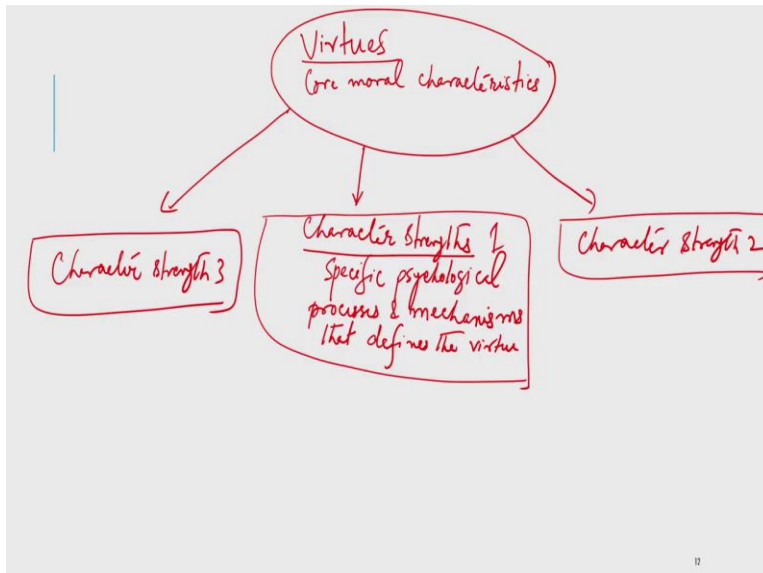 Virtues
Core moral characteristics
Character strength 3
Character strengths 1
Specific psychological
processes & mechanisms
that defines the virtue
Character strength 2
12